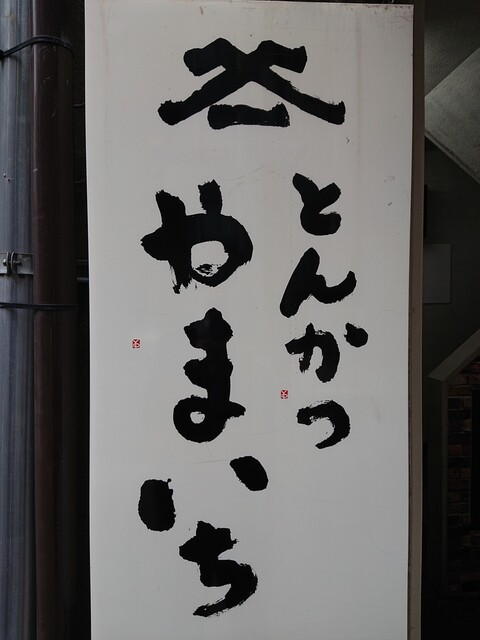 とんかつ
やまいち